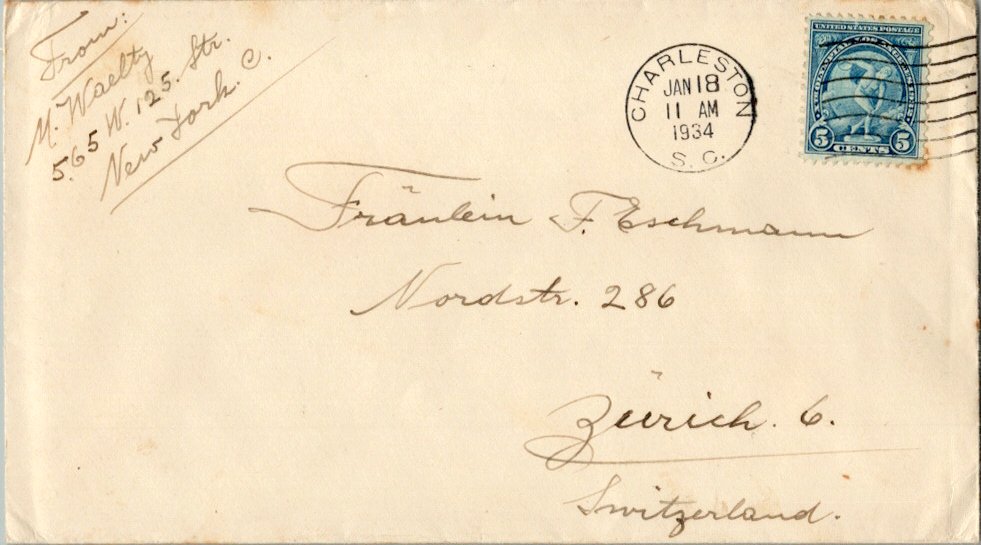 From:
M. Waelty
565 W. 125. Str.
New York. C.
CHARLESTON
JAN 18
11 AM
1934
S. C.
UNITED STATES POSTAGE
5 CENTS 5
Fräulein F. Eschmann
Nordstr. 286
Zürich. 6.
Switzerland.